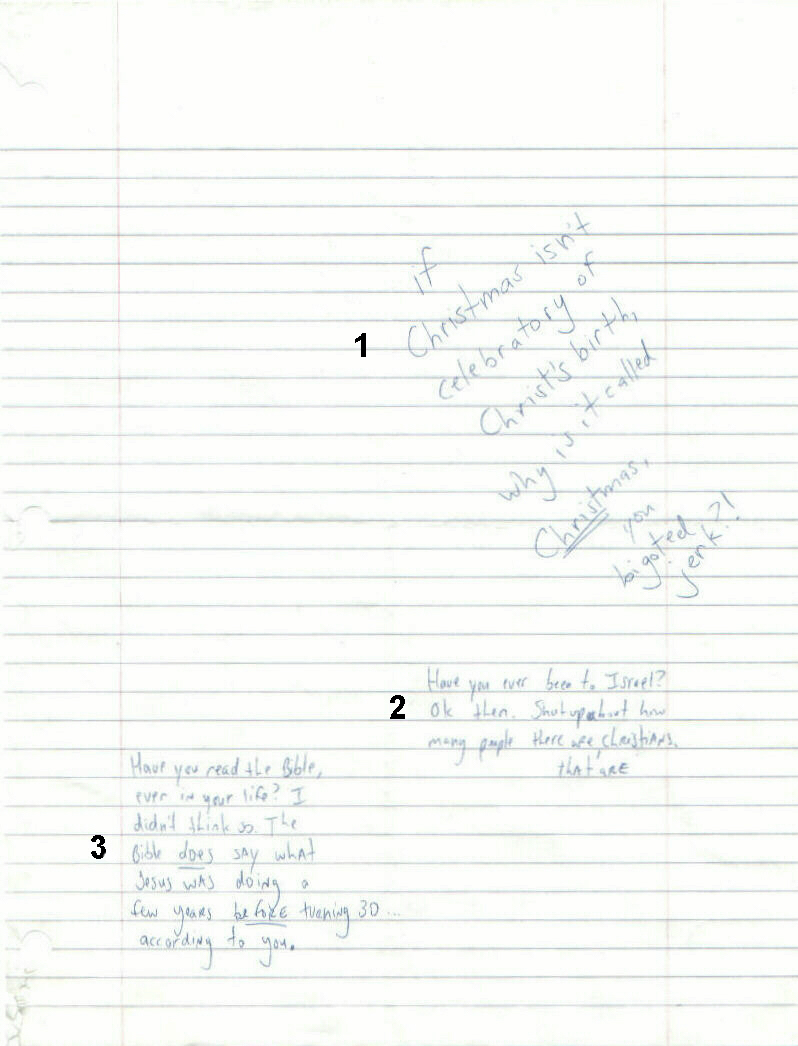 if
Christmas isn't
celebratory of
1
Christ's birth,
why is it called
Christmas,
you
bigoted
jerk?!
Have you ever been to Israel?
2
Ok then. Shut up about how
many people there are christians.
that are
Have you read the Bible,
ever in your life? I
didn't think so. The
3
Bible does say what
Jesus was doing a
few years before turning 30...
according to you.